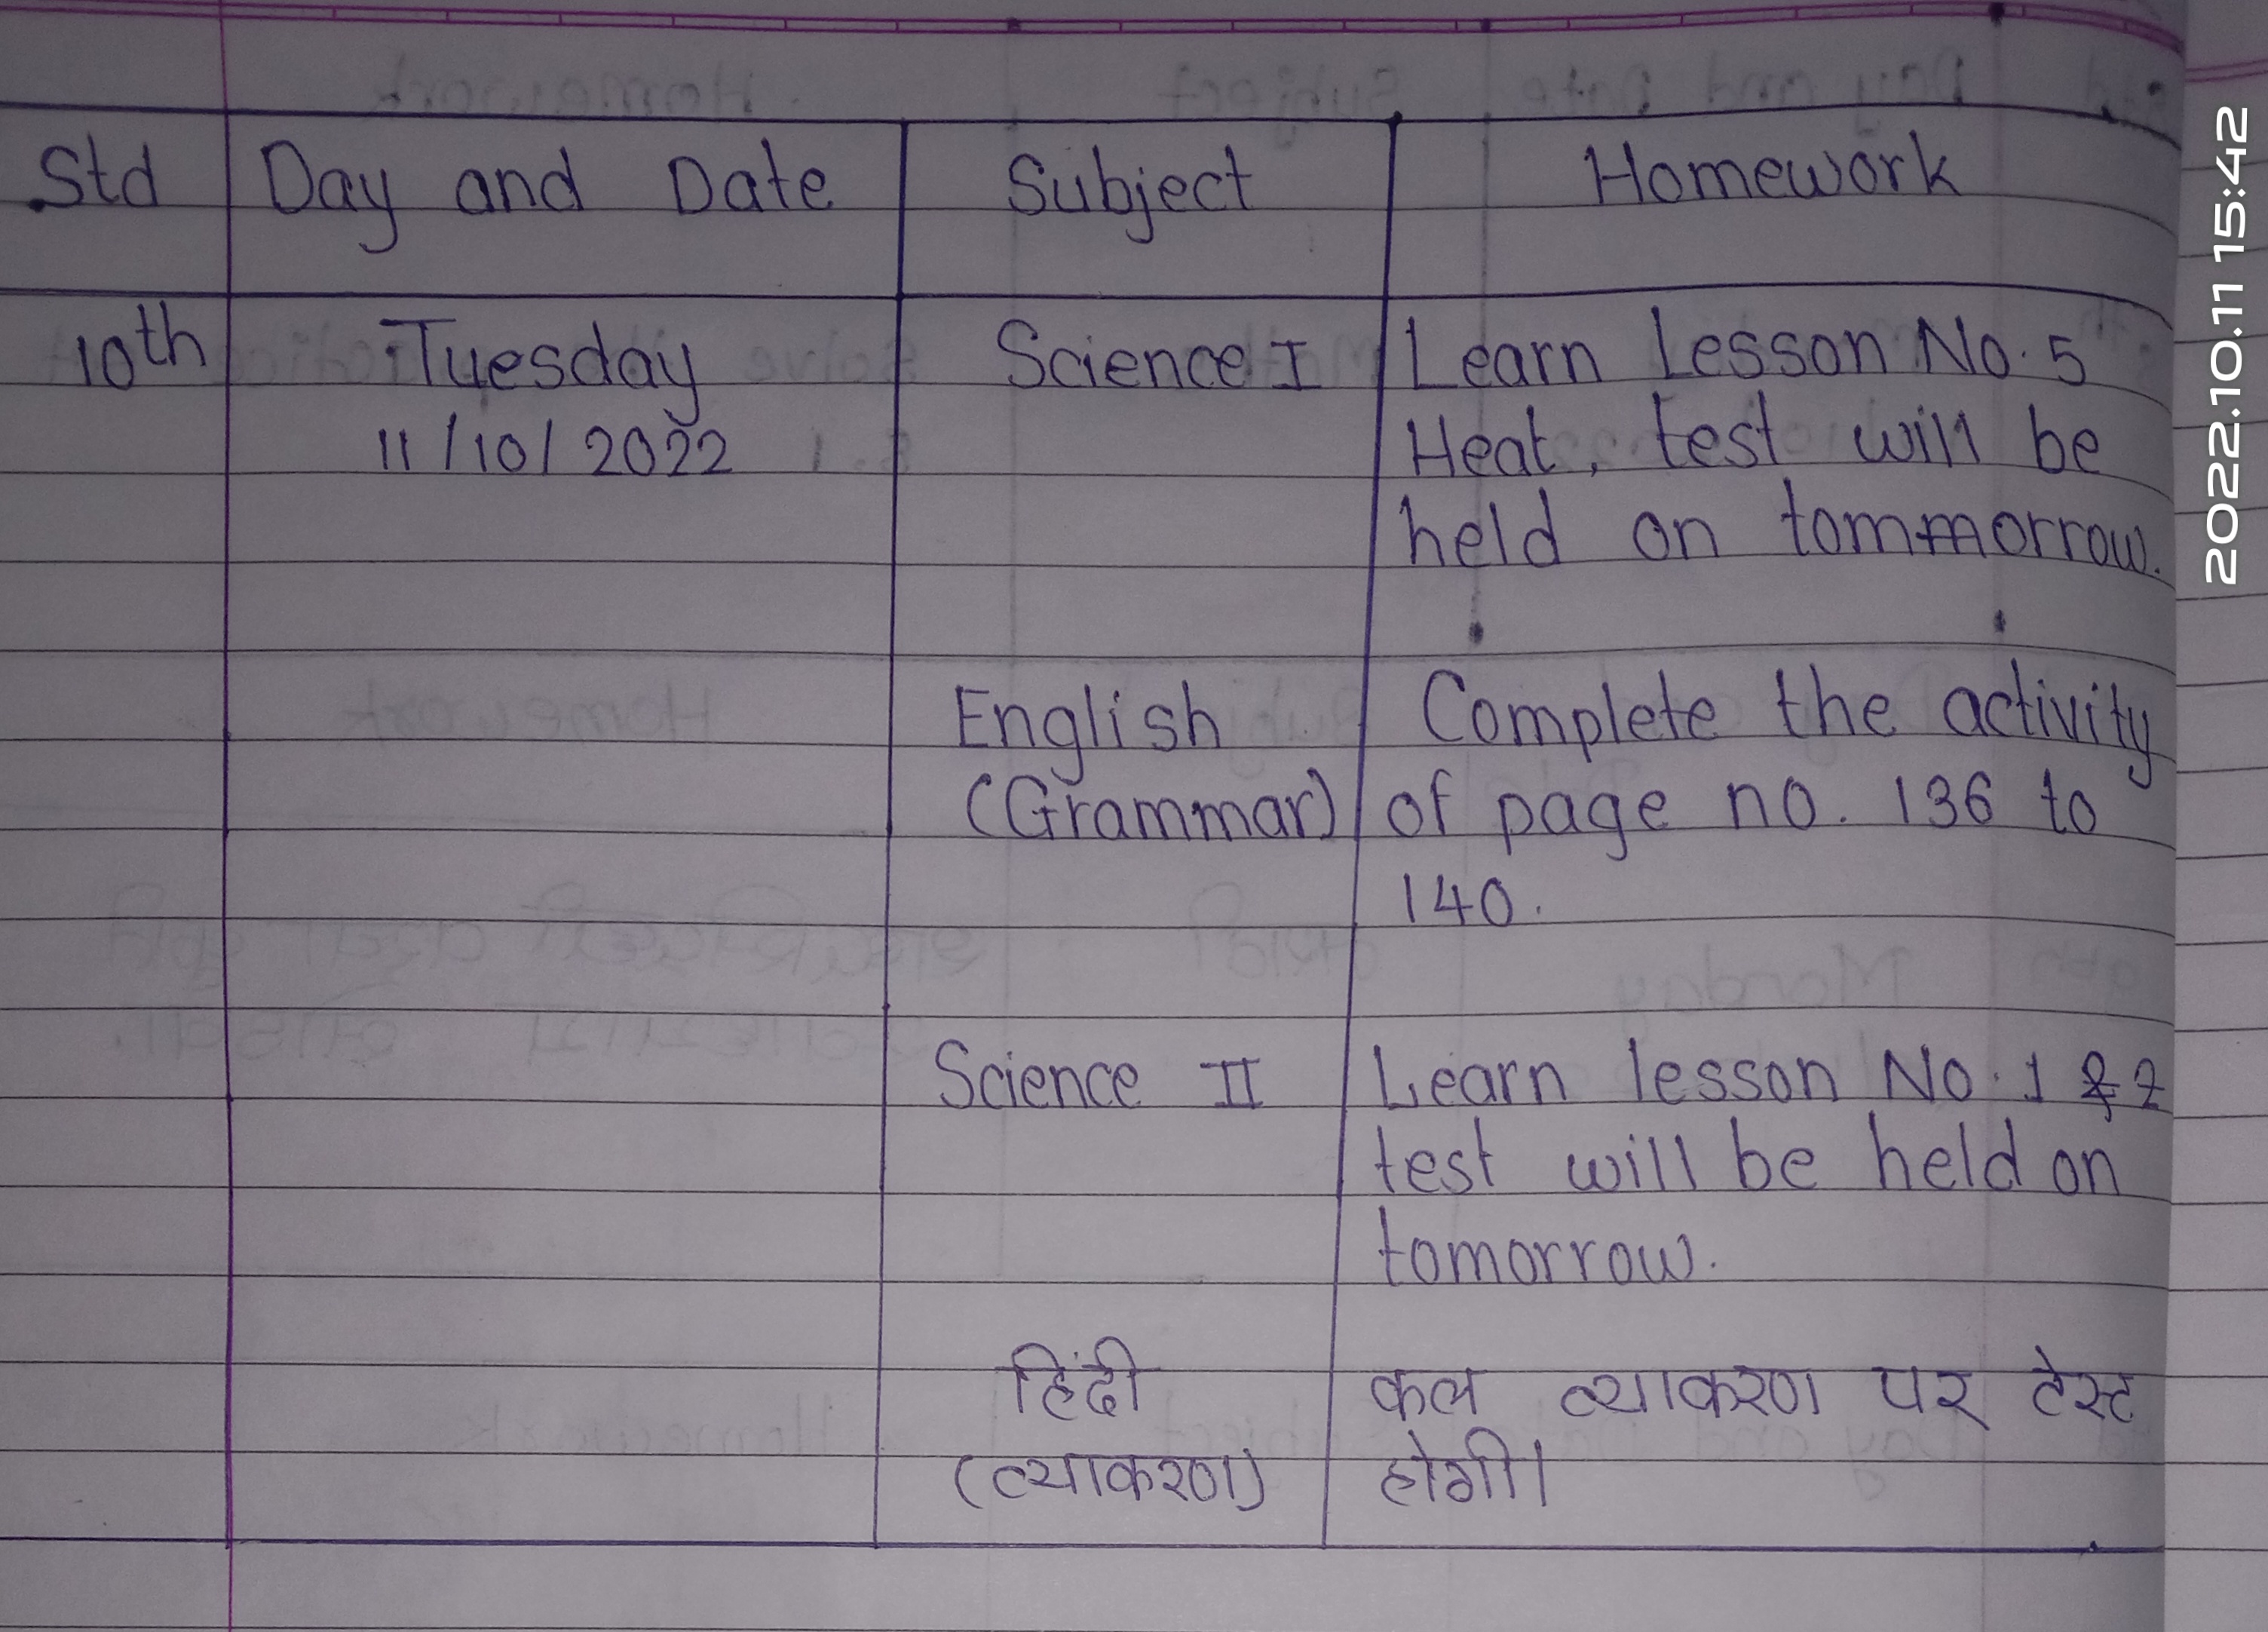 Std Day and Date Subject Homework
10th Tuesday Science I Learn Lesson No. 5
11/10/2022 Heat, test will be
held on tommorrow.
English Complete the activity
(Grammar) of page no. 136 to
140.
Science II Learn lesson No. 1 & 2
test will be held on
tomorrow.
हिंदी कल व्याकरण पर टेस्ट
(व्याकरण) होगी।
2022.10.11 15:42